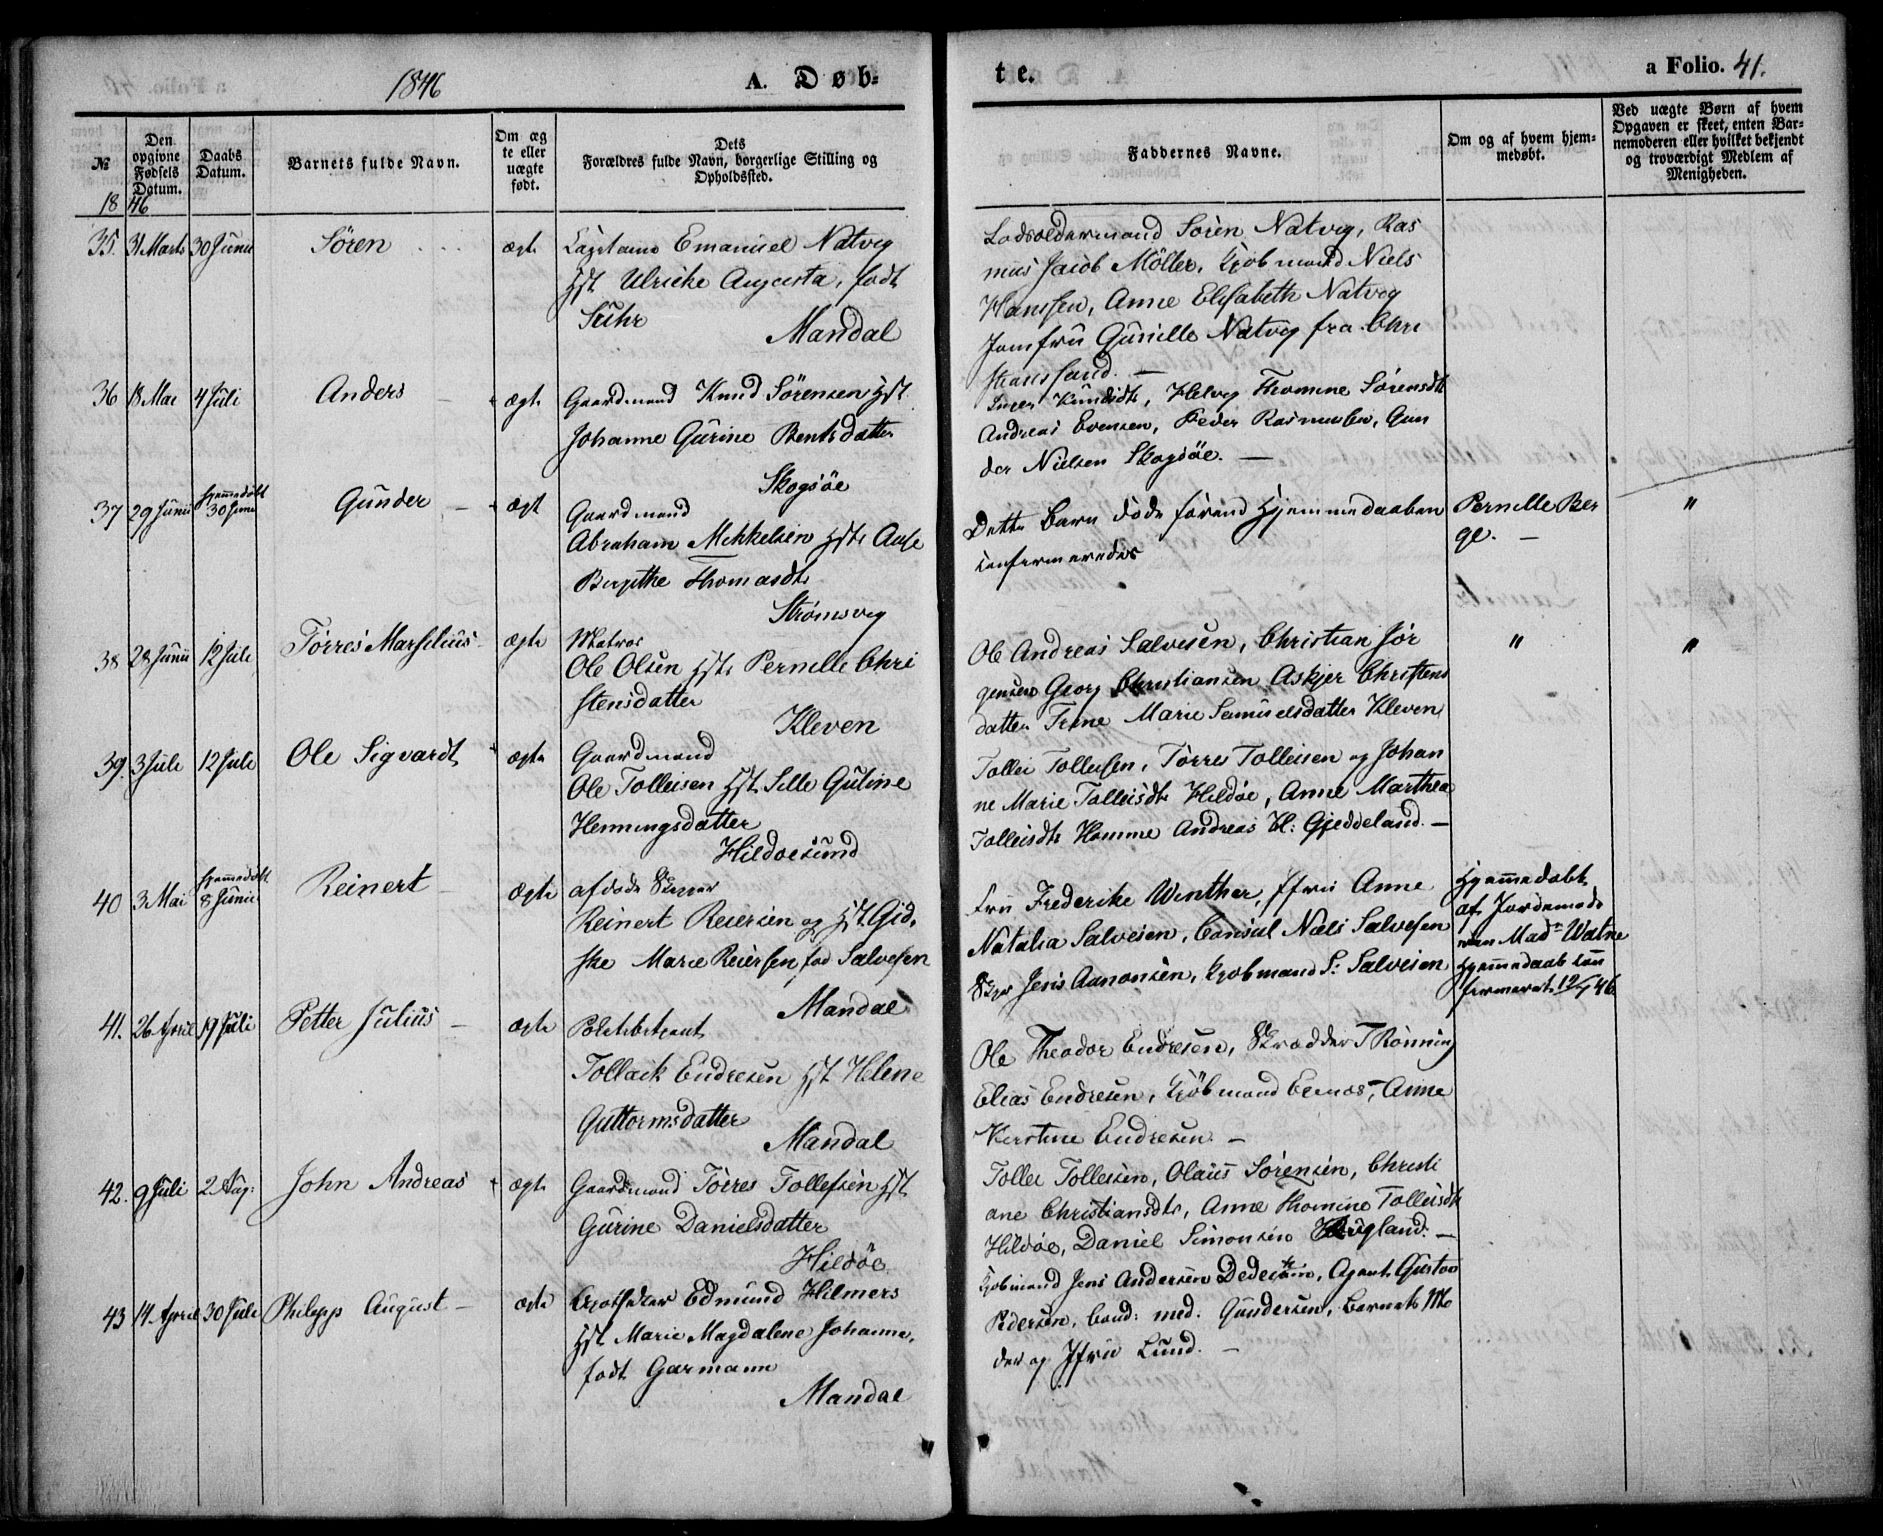 1846 A. Døb-
te. a Folio. 41.
№
Den opgivne Fødsels Datum.
Daabs Datum.
Barnets fulde Navn.
Om ægte eller uægte født.
Dets
Forældres fulde Navn, borgerlige Stilling og
Opholdssted.
Faddernes Navne.
Om og af hvem hjem-
medøbt.
Ved uægte Børn af hvem
Opgaven er skeet, enten Bar-
nemoderen eller hvilket bekjendt
og troværdigt Medlem af
Menigheden.
1846
35. 31 Marts 30 Junii Sören ægte Capitaine Emanuel Natvig
Hst Ulricke Augusta, født
Suhr
Mandal
Lodsoldermand Sören Natvig, Ras
mus Jacob Möller, Kjöbmand Niels
Hanssen, Anne Elisabeth Natvig
Jomfru Gunille Natvig fra Chri
stianssand. —
36 18 Mai 4 Juli Anders ægte Gaardmand Knud Sörensen Hst
Johanne Gurine Bentsdatter
Skogsöe
Knudsdtr, Helvig Thomine Sörensdtr
Andreas Evensen, Peder Rasmussen, Gun
der Nielsen Skogsöe. —
37 29 Junii hjemmedöbt 30 Junii Gunder ægte Gaardmand
Abraham Mekkelsen Hst Aase
Birgithe Thomasdtr
Strömsvig
Dette Barn döde förend Hjemmedaaben
confirmeredes
Pernille Ber
ge. —
"
38 28 Junii 12 Juli Törres Marselius ægte Matros
Ole Olsen Hst Pernille Chri
stensdatter
Kleven
Ole Andreas Salvesen, Christian Jör
gensen Georg Christiansen Askjer Christens
datter Trine Marie Samuelsdatter Kleven
" "
39. 3 Juli 12 Juli Ole Sigvardt ægte Gaardmand
Ole Tolleisen Hst Sille Guline
Henningsdatter
Hildoesund
Tollei Tolleisen, Törres Tolleisen og Johan
ne Marie Tolleisdtr Hildöe, Anne Marthea
Tolleisdtr Homme Andreas Gjeddeland. —
40 3 Mai hjemmedöbt 8 Junii Reinert ægte afdöde Skipper
Reinert Reiersen og Hst Gid
ske Marie Reiersen, fød Salvesen
Mandal
Fru Frederike Winther, Jfru Anne
Natalia Salvesen, Consul Niels Salvesen
Jens Aanonsen, Kjöbmand S: Salvesen
Hjemmedøbt
af Jordemode
ren Mad: Watne
Hjemmedaab con
firmeret 12/7 46
41. 26 April 19 Juli Petter Julius ægte Politibetjent
Tollack Endresen Hst Helene
Guttormsdatter
Mandal
Ole Theodor Endresen, Skrædder T Rönning
Elias Endresen, Kjöbmand Anne
Kirstine Endresen. —
42. 9 Juli 2 Aug: John Andreas ægte Gaardmand Törres Tollefsen Hst
Gurine Danielsdatter
Hildöe
Tollei Tolleisen, Olaus Sörensen, Christi
ane Christiansdtr, Anne Thomine Tolleisdtr
Hildöe, Daniel Simonsen
43 14 April 30 Juli Philipp August ægte Apotheker Edmund Hilmers
Hst Marie Magdalene Johanne,
født Garmann
Mandal
Kjöbmand Jens Andersen Agent Gustav
Pedersen, Cand: med. Gundersen, Barnets Mo
der og Jfru Lund. —